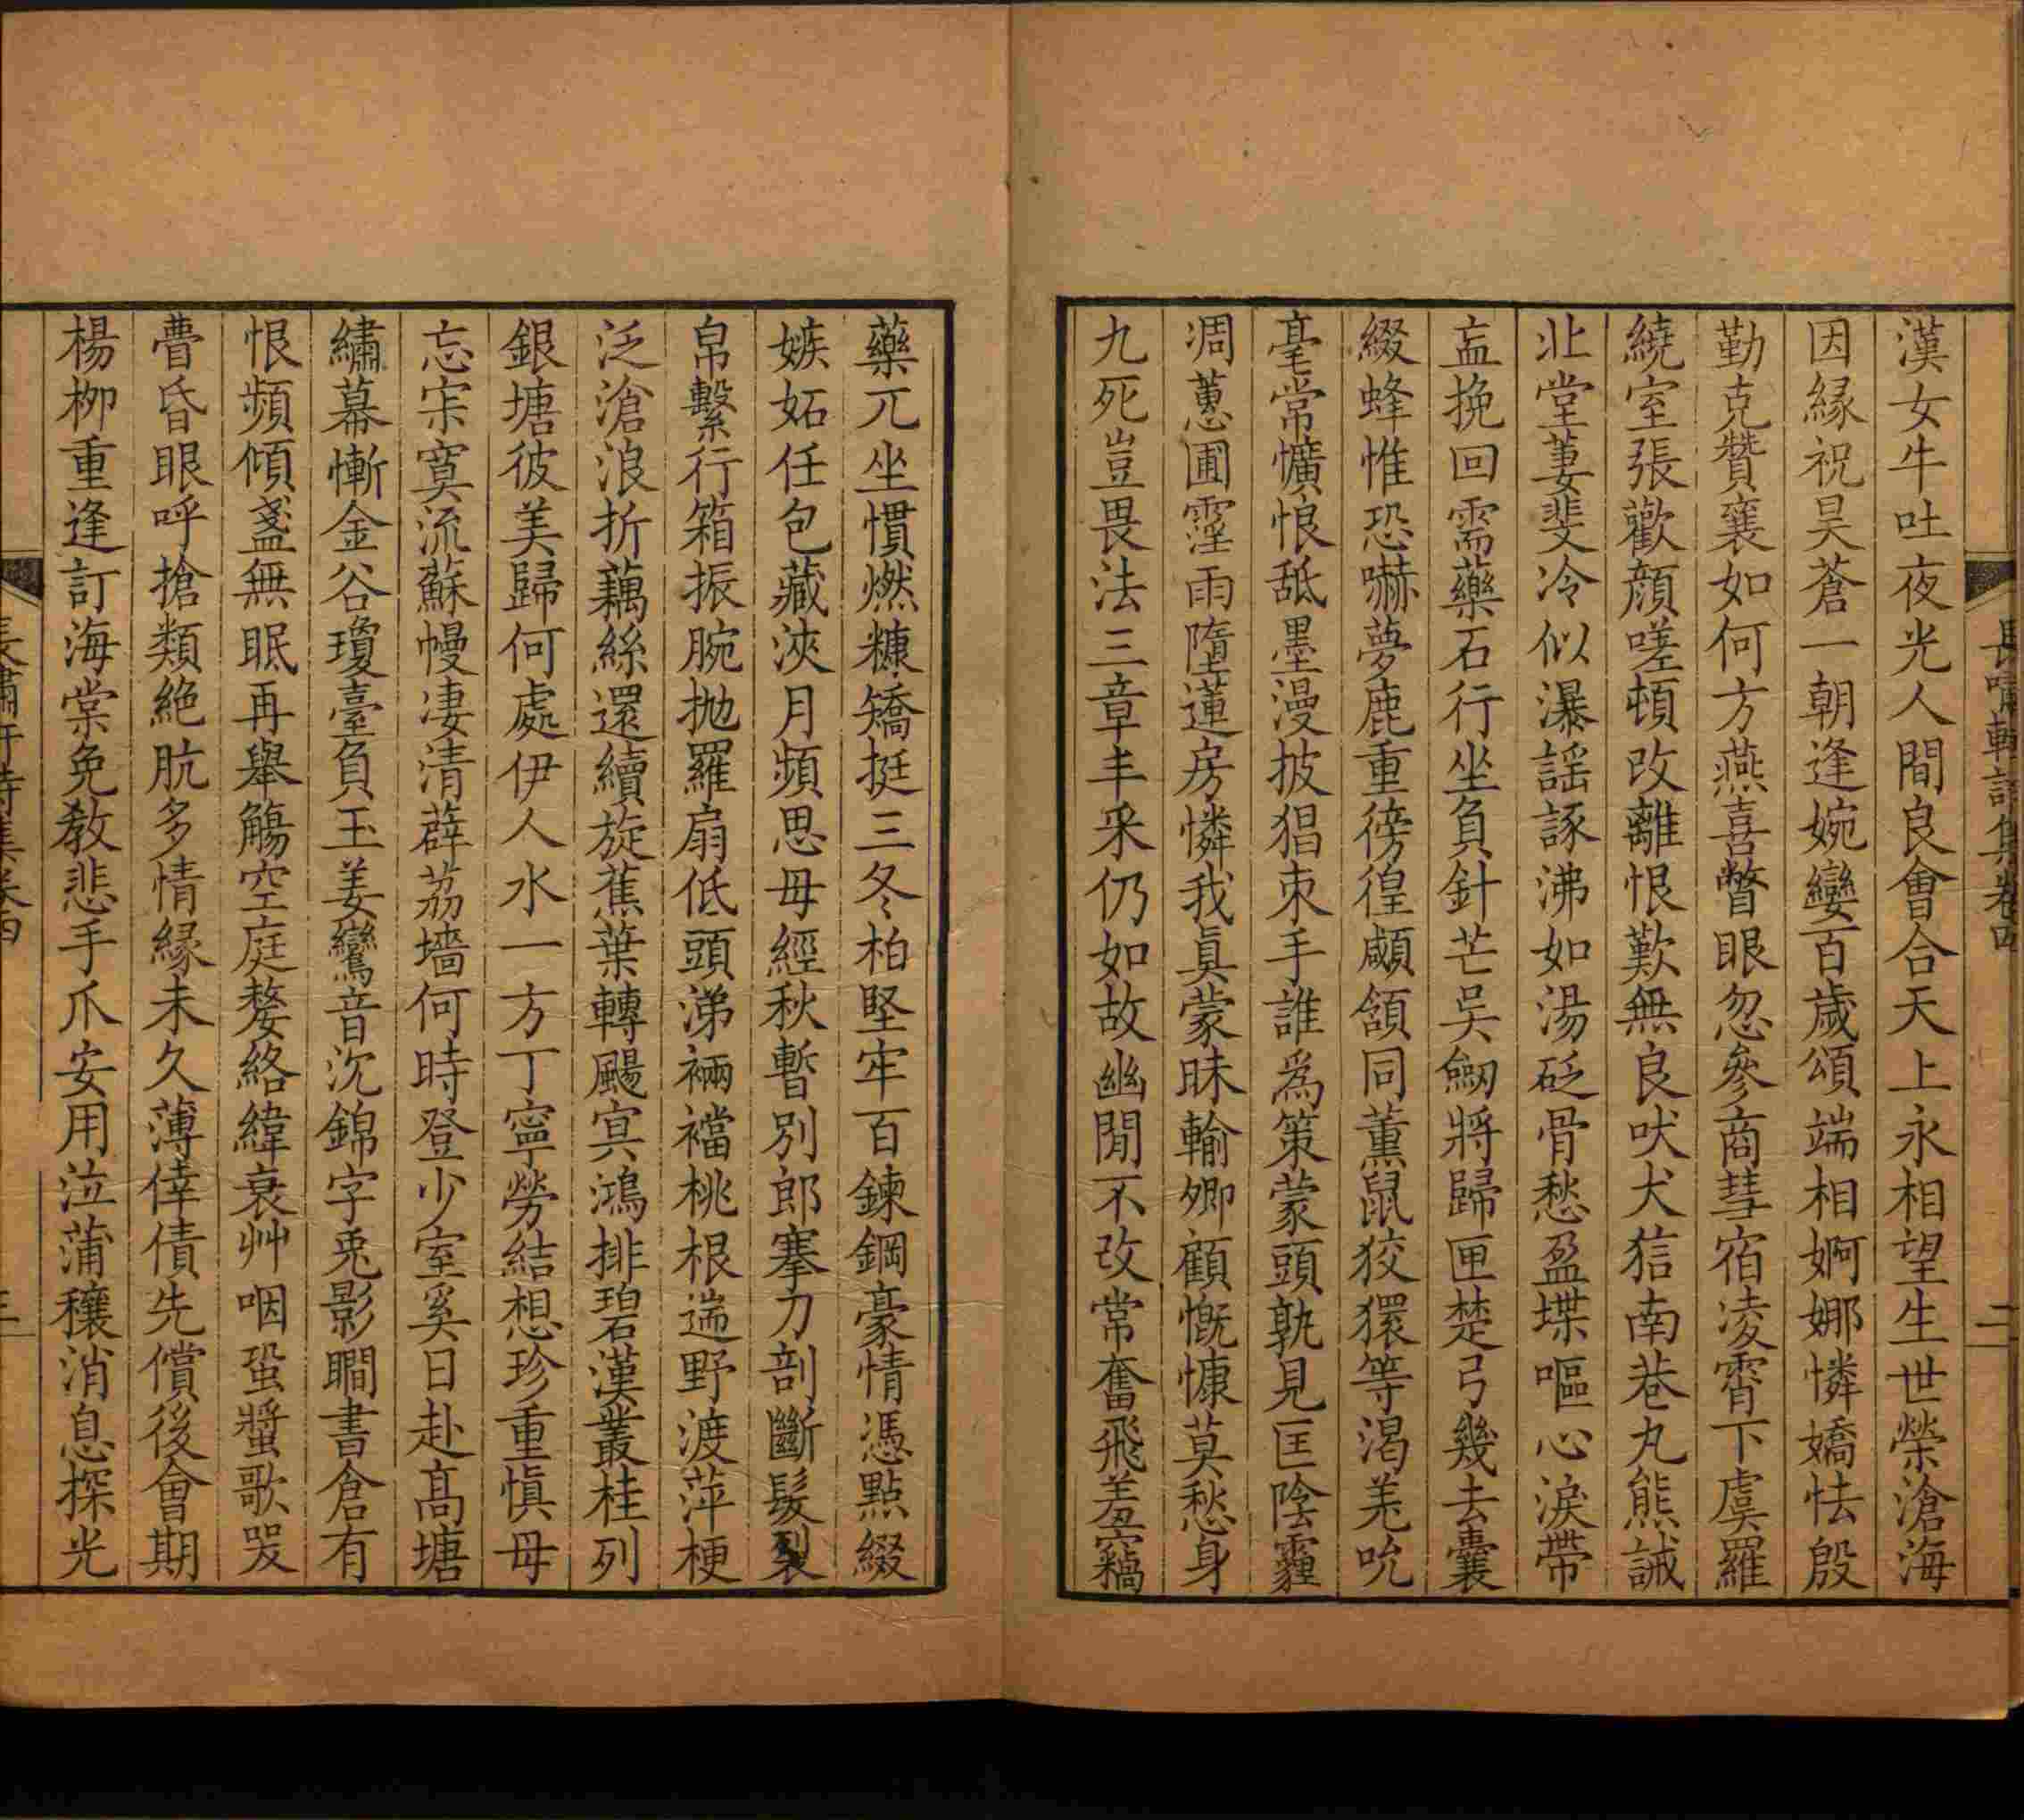 長嘯軒詩集卷四
二
漢女牛吐夜光人間良會合天上永相望生世榮滄海
因緣祝昊蒼一朝逢婉孌百歲頌端相婀娜憐嬌怯殷
勤克贊襄如何方燕喜瞥眼忽參商彗宿凌霄下虞羅
繞室張歡顏嗟頓改離恨歎無良吠犬狺南巷丸熊誡
北堂萋斐冷似瀑謡諑沸如湯砭骨愁盈堞嘔心淚帶
衁挽回需藥石行坐負針芒吴劒將歸匣楚弓幾去囊
綴蜂惟恐嚇夢鹿重徬徨顑頷同薰鼠狡獧等渴羌吮
毫常懭悢舐墨漫披猖束手誰為策蒙頭孰見匡陰霾
凋蕙圃霪雨墮蓮房憐我眞蒙昧輸卿顧慨慷莫愁身
九死豈畏法三章丰采仍如故幽閒不改常奮飛羞竊
藥兀坐慣燃糠矯挺三冬柏堅牢百鍊鋼豪情憑點綴
嫉妬任包藏浹月頻思毋經秋暫別郎搴刀剖斷髮裂
帛繫行箱振腕抛羅扇低頭涕裲襠桃根遄野渡萍梗
泛滄浪折藕絲還續旋蕉葉轉颺冥鴻排碧漢叢桂列
銀塘彼美歸何處伊人水一方丁寧勞結想珍重愼毋
忘宋寞流蘇幔凄清薜荔墻何時登少室奚日赴高塘
繡幕慚金谷瓊臺負玉姜鸞音沉錦字兎影瞯書倉有
恨頻傾盞無眠再舉觴空庭嫠絡緯衰艸咽蛩螿歌哭
瞢昏眼呼搶類絶肮多情緣未久薄倖債先償後會期
楊栁重逢訂海棠免敎悲手爪安用泣蒲穰消息探光
長嘯軒詩集卷四
三